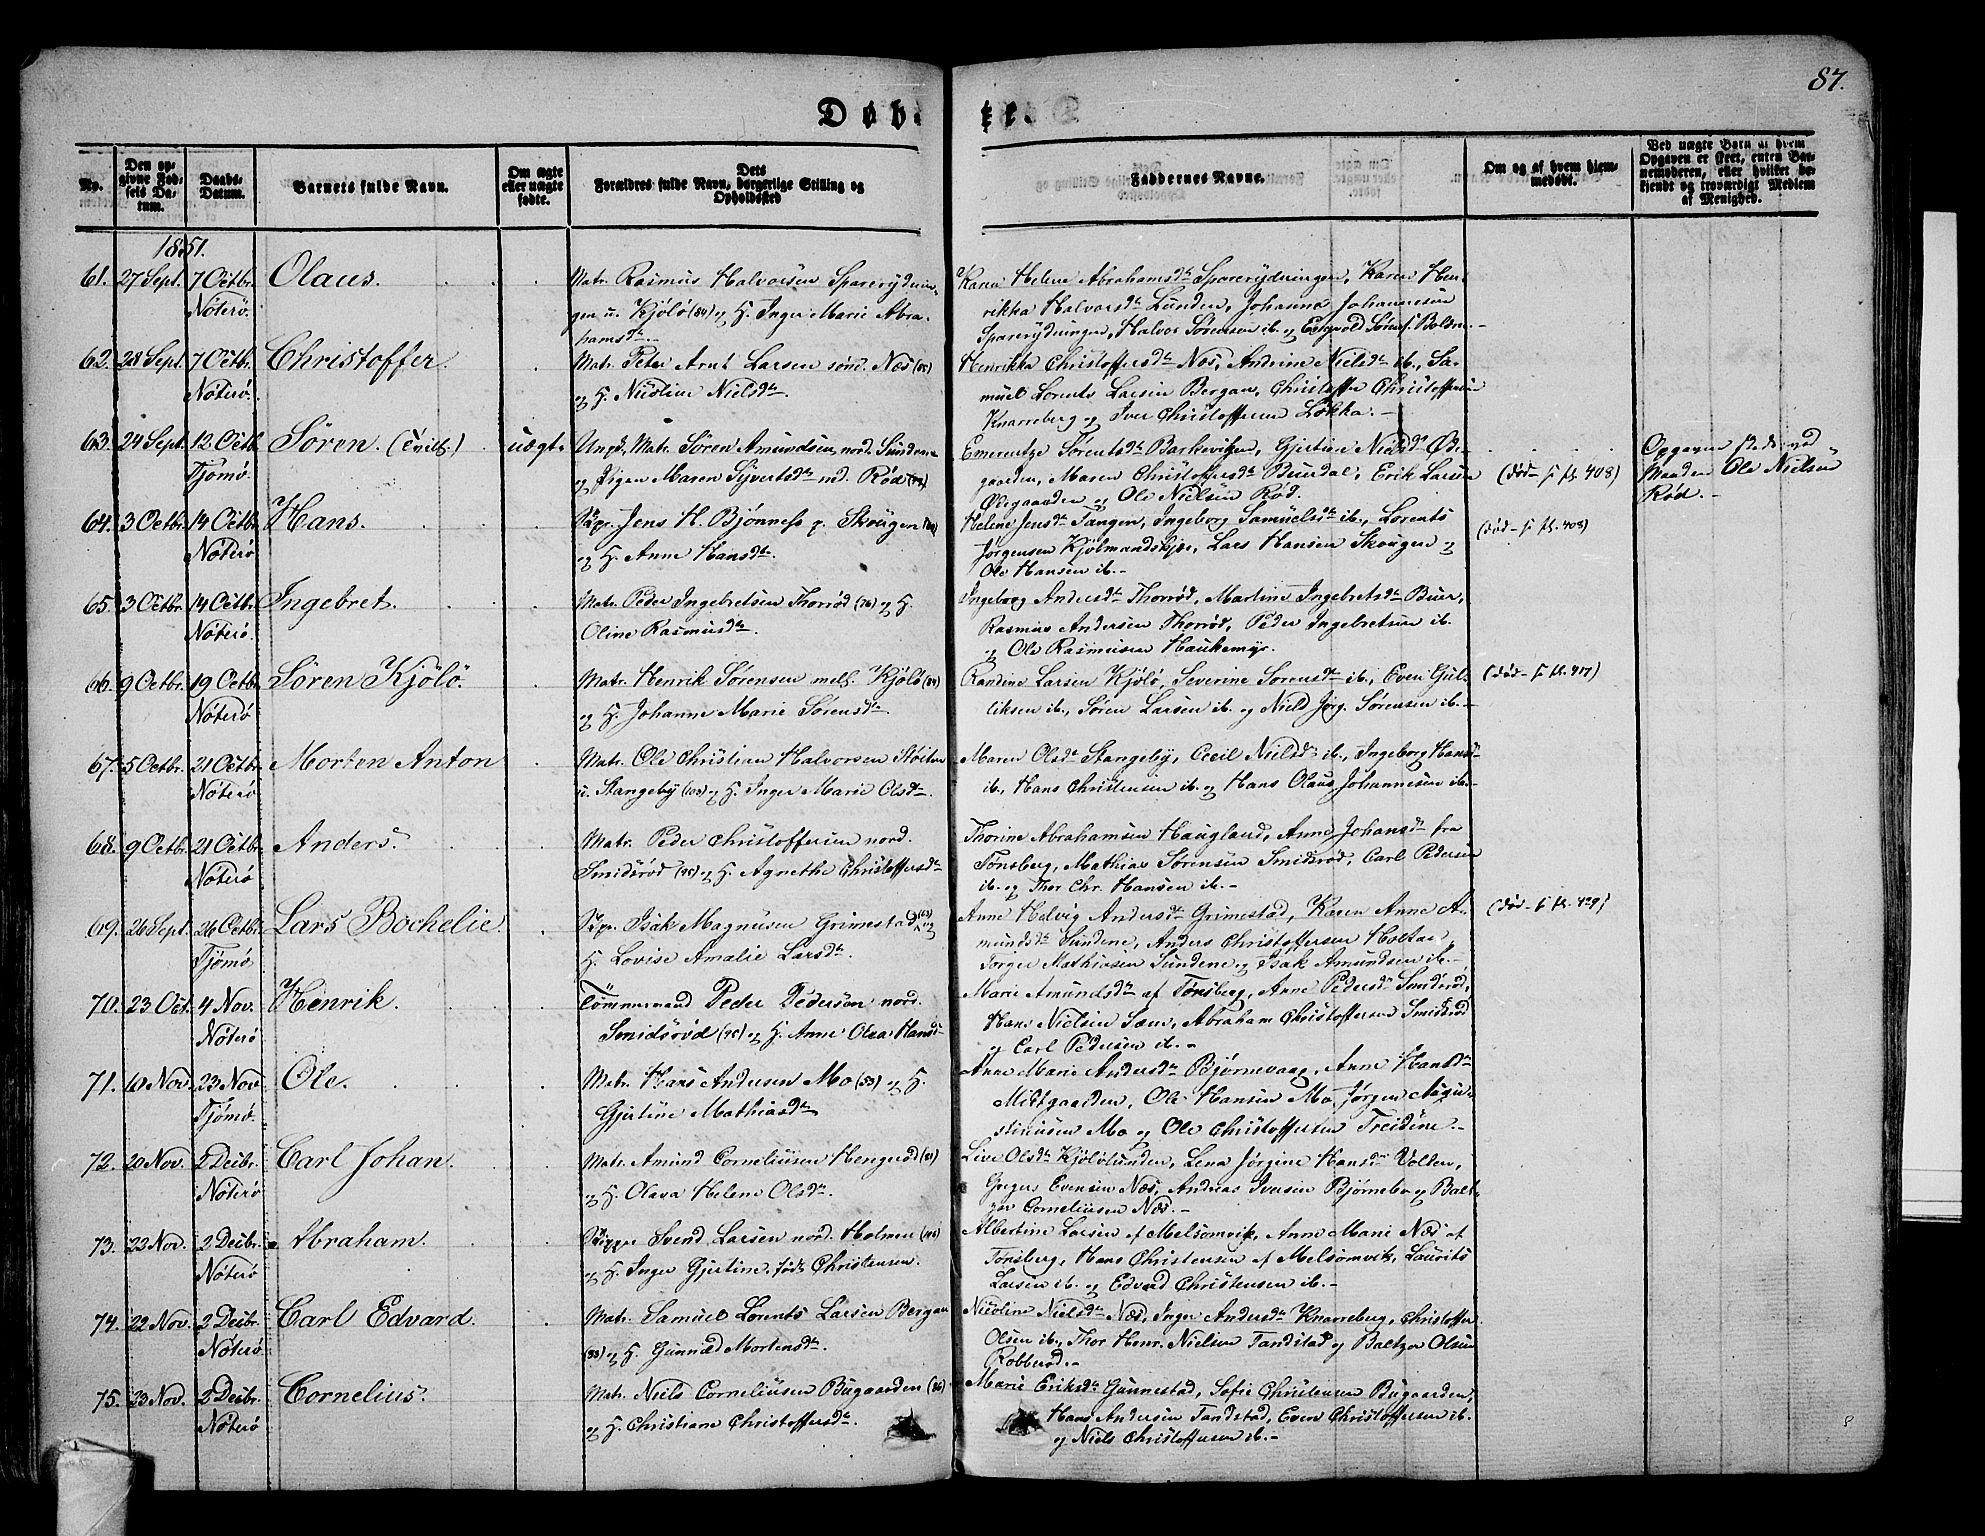 87.
Døbte.
No.
Den opgivne Fødsels Datum.
Daabs-Datum.
Barnets fulde Navn.
Om ægte eller uægte fødte.
Dets Forældres fulde Navn, borgerlige Stilling og Opholdssted
Faddernes Navne.
Om og af hvem hjemmedøbt.
Ved uægte Barn af hvem Opgaven er skeet, enten Barnemoderen, eller hvilket bekjendt og troværdigt Medlem af Menighed.
1851.
61. 27 Sept. 7 Octbr. Nöterö. Olaus.
Matr. Rasmus Halvorsen Sparerydnin-
gen u. Kjölö (84) og H. Inger Marie Abra-
hamsdtr.
Karen Helene Abrahamsdtr Sparerydningen, Karen Hen-
rikka Halvorsdtr Lunden, Johanna Johannesen
Sparerydningen, Halvor Sørensen ib. og
62. 28 Sept. 7 Octbr. Nöterö. Christoffer.
Matr. Peter Arnt Larsen sönd. Næs (85)
og H. Nicoline Nielsdtr.
Henrikka Christoffersdtr Næs, Andrine Nielsdtr ib., Sa-
muel Lorents Larsen Bergan, Christoffer Christoffersen
Knarreberg og Iver Christoffersen Løkka.-
63. 24 Sept. 12 Octb. Tjömö. Søren. (Tvill.) uægt.
Ungk. Matr. Sören Amundsen nord. Sundene
og Pigen Maren Syvertsdtr nd. Rød
Emerentze Sørensdtr Barkevigen, Gjertine Nielsdtr Øde-
gaarden, Maren Christoffersdtr Buerdal, Erik Larsen
Ødegaarden og Ole Nielsen Rød.
(död - s. fl. 408)
Opgaven skede ved
Manden Ole Nielsen
Rød.-
64. 3 Octbr. 14 Octbr. Nöterö. Hans.
Skpr. Jens H. Bjønness p. Skougen
og H. Anne Hansdtr.
Helene Jensdtr Tangen, Ingeborg Samuelsdtr ib., Lorents
Jørgensen Kjölmandskjær, Lars Hansen Skougen og
Ole Hansen ib.-
(död - s. fl. 408)
65. 3 Octbr. 14 Octbr. Nöterö. Ingebret.
Matr. Peder Ingebretsen Thorrød (76) og H.
Oline Rasmusdtr.
Ingeborg Andersdtr Thorrød, Martine Ingebretsdtr Buer,
Rasmus Andersen Thorrød, Peder Ingebretsen ib.
og Ole Rasmussen Haukemyr.
66. 9 Octbr. 19 Octbr. Nöterö. Søren Kjölö.
Matr. Henrik Sørensen mell. Kjölö (84)
og H. Johanne Marie Sørensdtr.
Randine Larsen Kjölö, Severine Sorensdtr ib., Even Gul-
liksen ib., Søren Larsen ib. og Niels Jørg. Sørensen ib.-
(död - s. fl. 417)
67. 5 Octbr. 21 Octbr. Nöterö. Morten Anton
Matr. Ole Christian Halvorsen Stolten
u. Stangeby (103) og H. Inger Marie Olsdtr.
Maren Olsdtr Stangeby, Cecil Nielsdtr ib., Ingeborg Hansdtr
ib., Hans Christensen ib. og Hans Olaus Johannesen ib.-
68. 9 Octbr. 21 Octbr. Nöterö. Anders.
Matr. Peder Christoffersen nord.
Smidsrød (95) og H. Agnethe Christoffersdtr
Thorine Abrahamsen Haugland, Anne Johansdtr fra
Tønsberg, Mathias Sørensen Smidsrød, Carl Pedersen
ib. og Thor Chr. Hansen ib.-
69. 26 Sept. 26 Octbr. Tjömö. Lars Bochelie.
Skpr. Isak Magnusen Grimestad (63) og
H. Lovise Amalie Larsdtr.
Anne Helvig Andersdtr Grimestad, Karen Anne A-
mundsdtr Sundene, Anders Christoffersen Holtan,
Torger Mathiasen Sundene og Isak Amundsen ib.-
(död - s. fl. 429)
70. 23 Oct. 4 Nov. Nöterö. Henrik.
Tömmermand Peder Pedersen nord.
Smidsröd (95) og H. Anne Olea Hansdtr
Marie Amundsdtr af Tønsberg, Anne Pedersdtr Smidsröd,
Hans Nielsen Sæm, Abraham Christoffersen Smidsröd
og Carl Pedersen ib.-
71. 10 Nov. 23 Nov. Tjömö. Ole.
Matr. Hans Andersen Mo (53) og H.
Gjertine Mathiasdtr
Anne Marie Andersdtr Bjørnevaag, Anne Hansdtr
Midtgaarden, Ole Hansen Mo, Jørgen Augu-
stinusen Mo og Ole Christoffersen Treidene.-
72. 20 Nov. 2 Decbr. Nöterö. Carl Johan.
Matr. Amund Corneliusen Hengerød (81)
og H. Olava Helene Olsdtr.
Live Olsdtr Kjölölunden, Lena Jørgine Hansdtr Volden,
Greger Evensen Næs, Andreas Iversen Bjørneby og Balt-
zer Corneliusen Næs.-
73. 22 Nov. 2 Decbr. Nöterö. Abraham.
Skipper Svend Larsen nord. Holmen
og H. Inger Gjertine, født Christensen.
Albertine Larsen af Melsomvik, Anne Marie Næs af
Tønsberg, Hans Christensen af Melsomvik, Laurits
Larsen ib. og Edvard Christensen ib.-
74. 22 Nov. 2 Decbr. Nöterö. Carl Edvard.
Matr. Samuel Lorents Larsen Bergan
(83) og H. Gunnild Mortensdtr.
Nicoline Nielsdtr Næs, Inger Andersdtr Knarreberg, Christoffer
Olsen ib., Thor Henr. Nielsen Tandstad og Baltzer Olsen
Robberød.-
75. 23 Nov. 2 Decbr. Nöterö. Cornelius.
Matr. Niels Corneliusen Bugaarden (86)
og H. Christiane Christoffersdtr.
Marie Eriksdtr Gunnestad, Sofie Christensen Bugaarden,
Hans Andersen Tandstad, Even Christoffersen ib.
og Niels Christoffersen ib.-